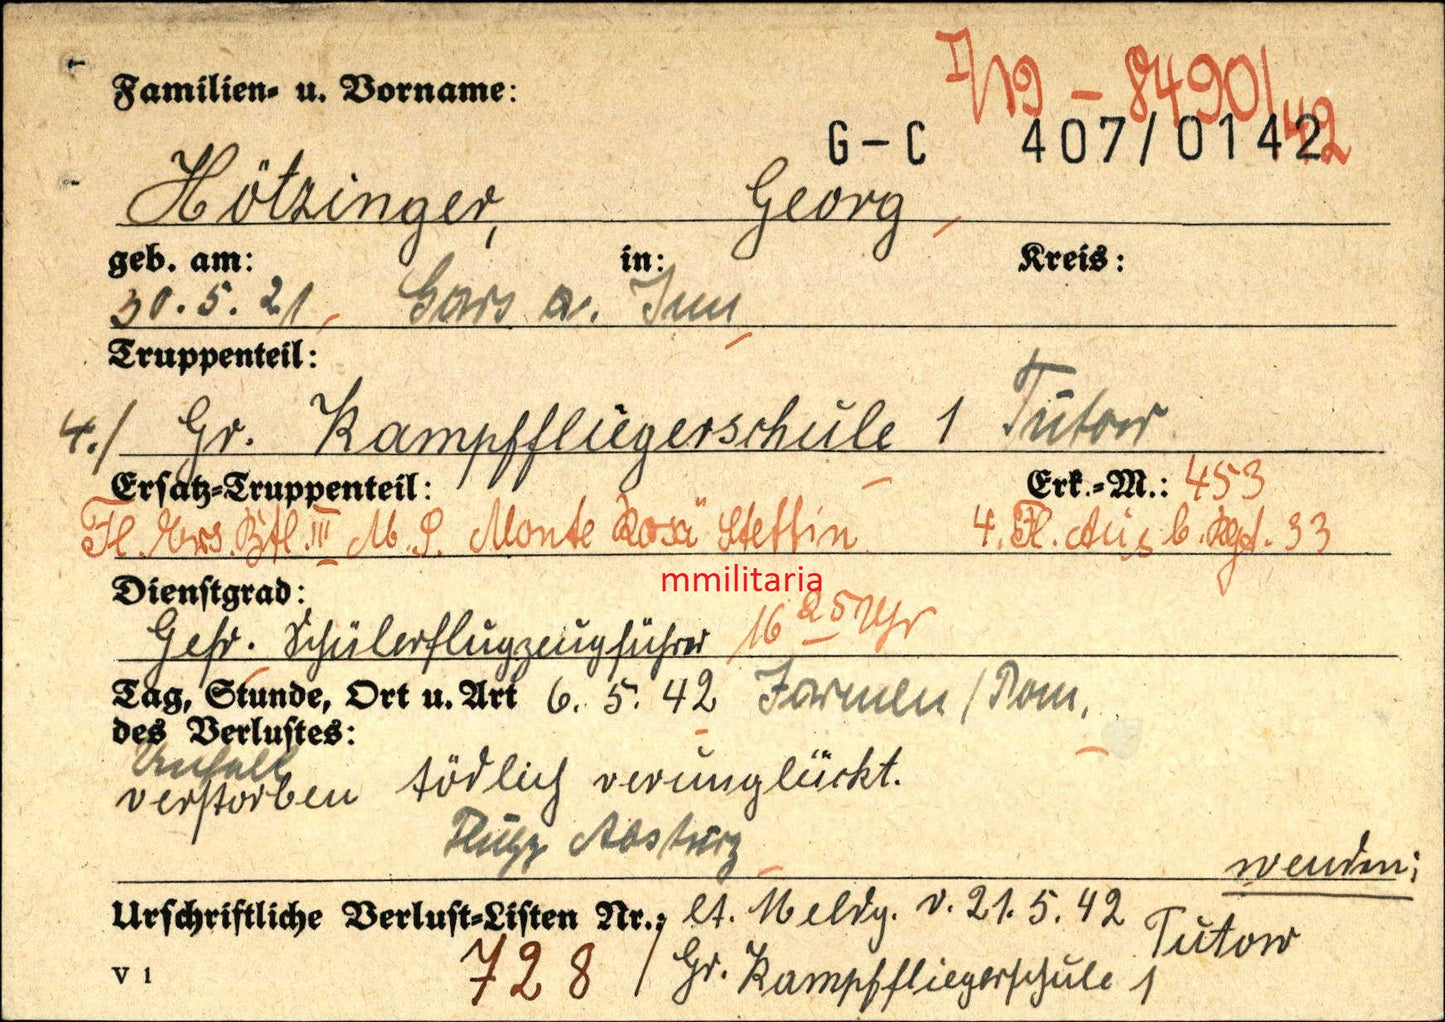 I/19 - 8490/42
Familien- u. Vorname:
G-C 407/0142
Hötzinger, Georg
geb. am: in: Kreis:
30.5.21 Gars a. Inn
Truppenteil:
4./ Gr. Kampffliegerschule 1 Tutow
Ersatz-Truppenteil: Erk.-M.: 453
Fl. Ers. Btl. III M. S. Monte Rosa" Stettin 4. Fl. Ausb. Rgt. 33
mmilitaria
Dienstgrad:
Gefr. Schülerflugzeugführer 16 25 Uhr
Tag, Stunde, Ort u. Art 6. 5. 42 Jarmen / Pom.
des Verlustes:
Unfall
verstorben tödlich verunglückt.
Flugz Absturz
wenden!
Urschriftliche Verlust-Listen Nr.: lt. Meldg. v. 21.5.42
728 / Gr. Kampffliegerschule 1 Tutow
V 1